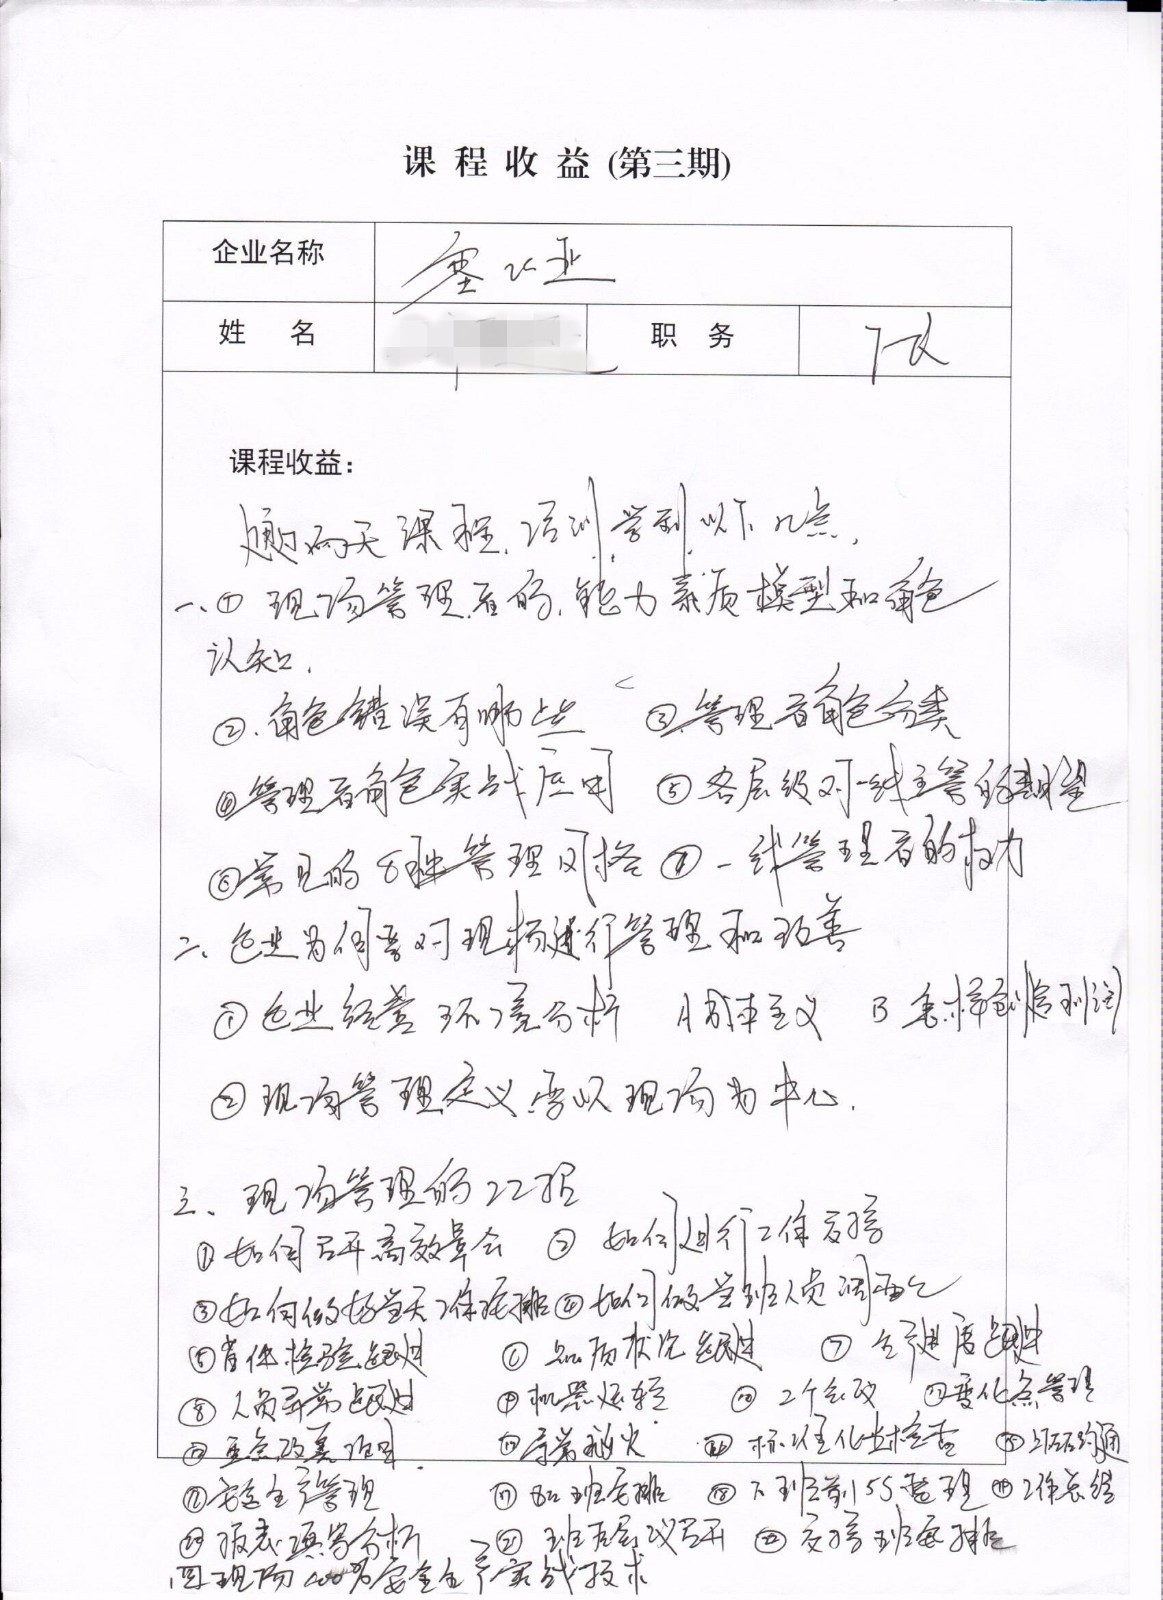 课 程 收 益 (第三期)
企业名称
姓 名 职 务
课程收益：
通过两天课程,培训,学到以下几点,
一、① 现场管理者的,能力素质模型和角色
认知.
②.角色错误有哪些 ③.管理者角色分类
④管理者角色实战应用 ⑤各层级对一线主管的期望
⑥常见的8种管理风格 ⑦一线管理者的权力
二、企业为何要对现场进行管理和改善
① 企业经营环境分析 A成本主义 B 怎样创造利润
② 现场管理定义,要以现场为中心.
三、现场管理的22招
①如何召开高效早会 ② 如何进行工作交接
③如何做好当天工作安排 ④如何做当班人员调配
⑤首件检验跟进 ⑥ 品质状况跟进 ⑦ 生产进度跟进
⑧ 人员异常跟进 ⑨机器 ⑩ ⑪变化点管理
⑫重点改善 ⑬异常 ⑭ 标准化 检查 ⑮ 沟通
⑯安全生产管理 ⑰加班安排 ⑱下班前5S整理 ⑲工作总结
⑳报表填写分析 ㉑ 班后会议召开 ㉒ 交接班
四现场100%安全生产实战技术